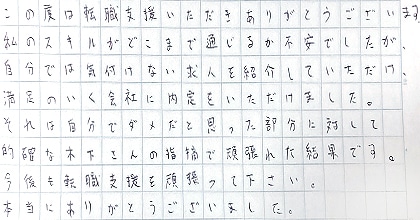 この度は転職支援いただきありがとうございます
私のスキルがどこまで通じるか不安でしたが、
自分では気付けない求人を紹介していただけ、
満足のいく会社に内定をいただけました。
それは自分でダメだと思った部分に対して
的確な木下さんの指摘で頑張れた結果です。
今後も転職支援を頑張って下さい。
本当にありがとうございました。